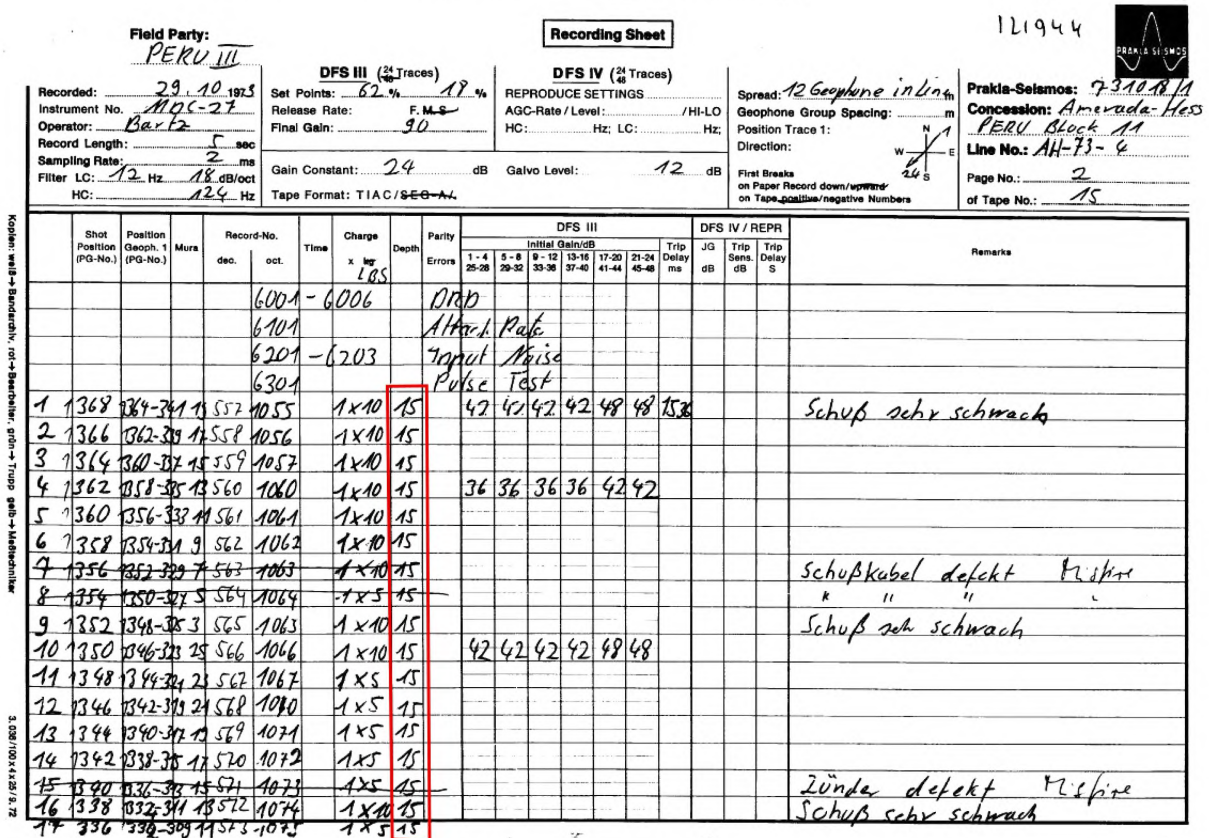 121944
PRAKLA SEISMOS
Field Party:
PERU III
Recording Sheet
Recorded: 29.10 1973
Instrument No. MDC-27
Operator: Bartz
Record Length: 5 sec
Sampling Rate: 2 ms
Filter LC: 12 Hz 18 dB/oct
HC: 124 Hz
DFS III (24/48 Traces)
Set Points: 62 % 18 %
Release Rate: F.M.S
Final Gain: 90
Gain Constant: 24 dB
Tape Format: TIAC/SEG-A/.
DFS IV (24/48 Traces)
REPRODUCE SETTINGS
AGC-Rate / Level: /HI-LO
HC: Hz; LC: Hz;
Galvo Level: 12 dB
Spread: 12 Geophone in Linie
Geophone Group Spacing: m
Position Trace 1:
Direction:
N 1
W E
24 S
First Breaks
on Paper Record down/upward
on Tape positive/negative Numbers
Prakla-Seismos: 731018/1
Concession: Amerada-Hess
PERU Block 11
Line No.: AH-73-4
Page No.: 2
of Tape No.: 15
Shot Position (PG-No.) Position Geoph. 1 (PG-No.) Mura Record-No. dec. oct. Time Charge x kg LBS Depth Parity Errors DFS III Initial Gain/dB 1-4 25-28 5-8 29-32 9-12 33-36 13-16 37-40 17-20 41-44 21-24 45-48 Trip Delay ms DFS IV / REPR JG dB Trip Sens. dB Trip Delay S Remarks
6001 - 6006
6101
6201 - 6203 Input Noise
6301 Pulse Test
1 1368 1364-341 19 557 1055 1x10 15 42 42 42 42 48 48 1536 Schuß sehr schwach
2 1366 1362-339 17 558 1056 1x10 15
3 1364 1360-337 15 559 1057 1x10 15
4 1362 1358-335 13 560 1060 1x10 15 36 36 36 36 42 42
5 1360 1356-333 11 561 1061 1x10 15
6 1358 1354-331 9 562 1062 1x10 15
7 1356 1352-329 7 563 1063 1x10 15 Schußkabel defekt Misfire
8 1354 1350-327 5 564 1064 1x5 15 " " " "
9 1352 1348-325 3 565 1063 1x10 15 Schuß sehr schwach
10 1350 1346-323 25 566 1066 1x10 15 42 42 42 42 48 48
11 1348 1344-321 23 567 1067 1x5 15
12 1346 1342-319 21 568 1070 1x5 15
13 1344 1340-317 19 569 1071 1x5 15
14 1342 1338-315 17 570 1072 1x5 15
15 1340 1336-313 15 571 1073 1x5 15 Zünder defekt Misfire
16 1338 1332-311 13 572 1074 1x10 15 Schuß sehr schwach
17 336 1330-309 11 573 1075 1x5 15
Kopien: weiß→Bandarchiv, rot→Bearbeiter, grün→Trupp gelb→Meßtechniker
3. 038/100x4x25/9. 72